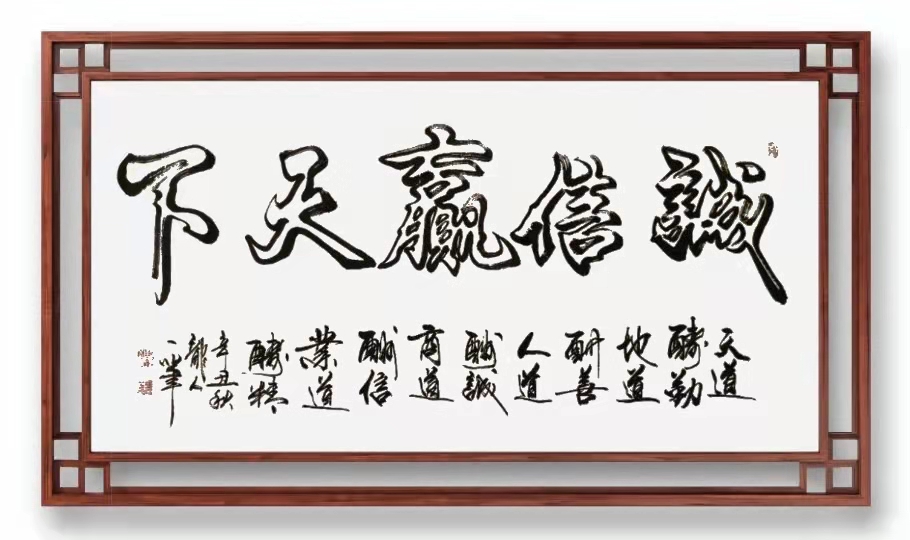 誠信贏天下
天道
酬勤
地道
酬善
人道
酬誠
商道
酬信
業道
酬精
辛丑秋
龍人
一筆